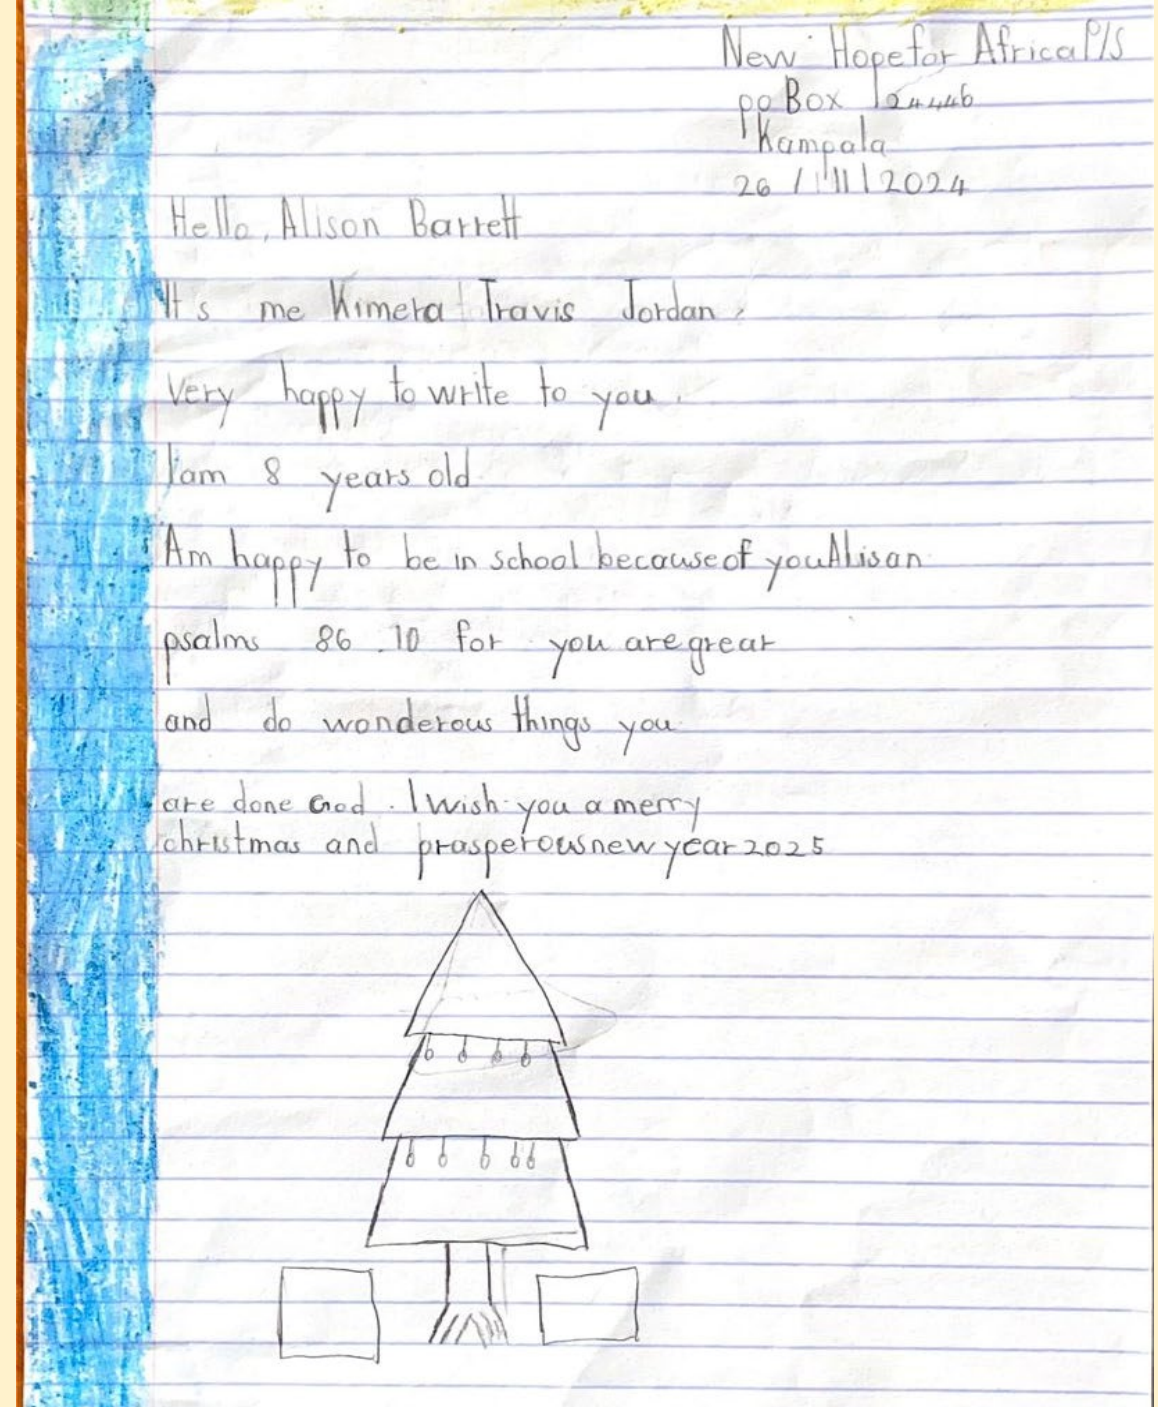 New Hope for Africa P/S
po Box 124446
Kampala
26 / 11 / 2024
Hello, Alison Barrett
It's me Kimera Travis Jordan,
Very happy to write to you.
I am 8 years old
Am happy to be in school because of you Alison
psalms 86.10 for you are great
and do wonderous things you
are done God. I wish you a merry
christmas and prosperous new year 2025